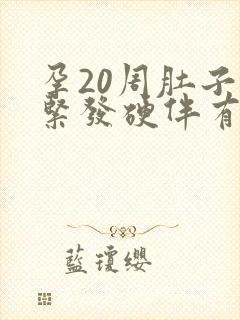 孕20周肚子
緊發硬伴有
藍瓊纓